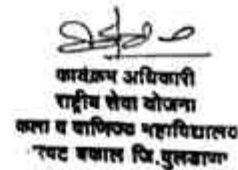 कार्यक्रम अधिकारी
राष्ट्रीय सेवा योजना
कला व वाणिज्य महाविद्यालय
बकाल जि.बुलडाणा